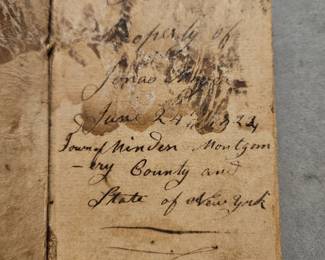 Property of
Jonas
June 24th
Town of Minden Montgom
-ery County and
State of New York